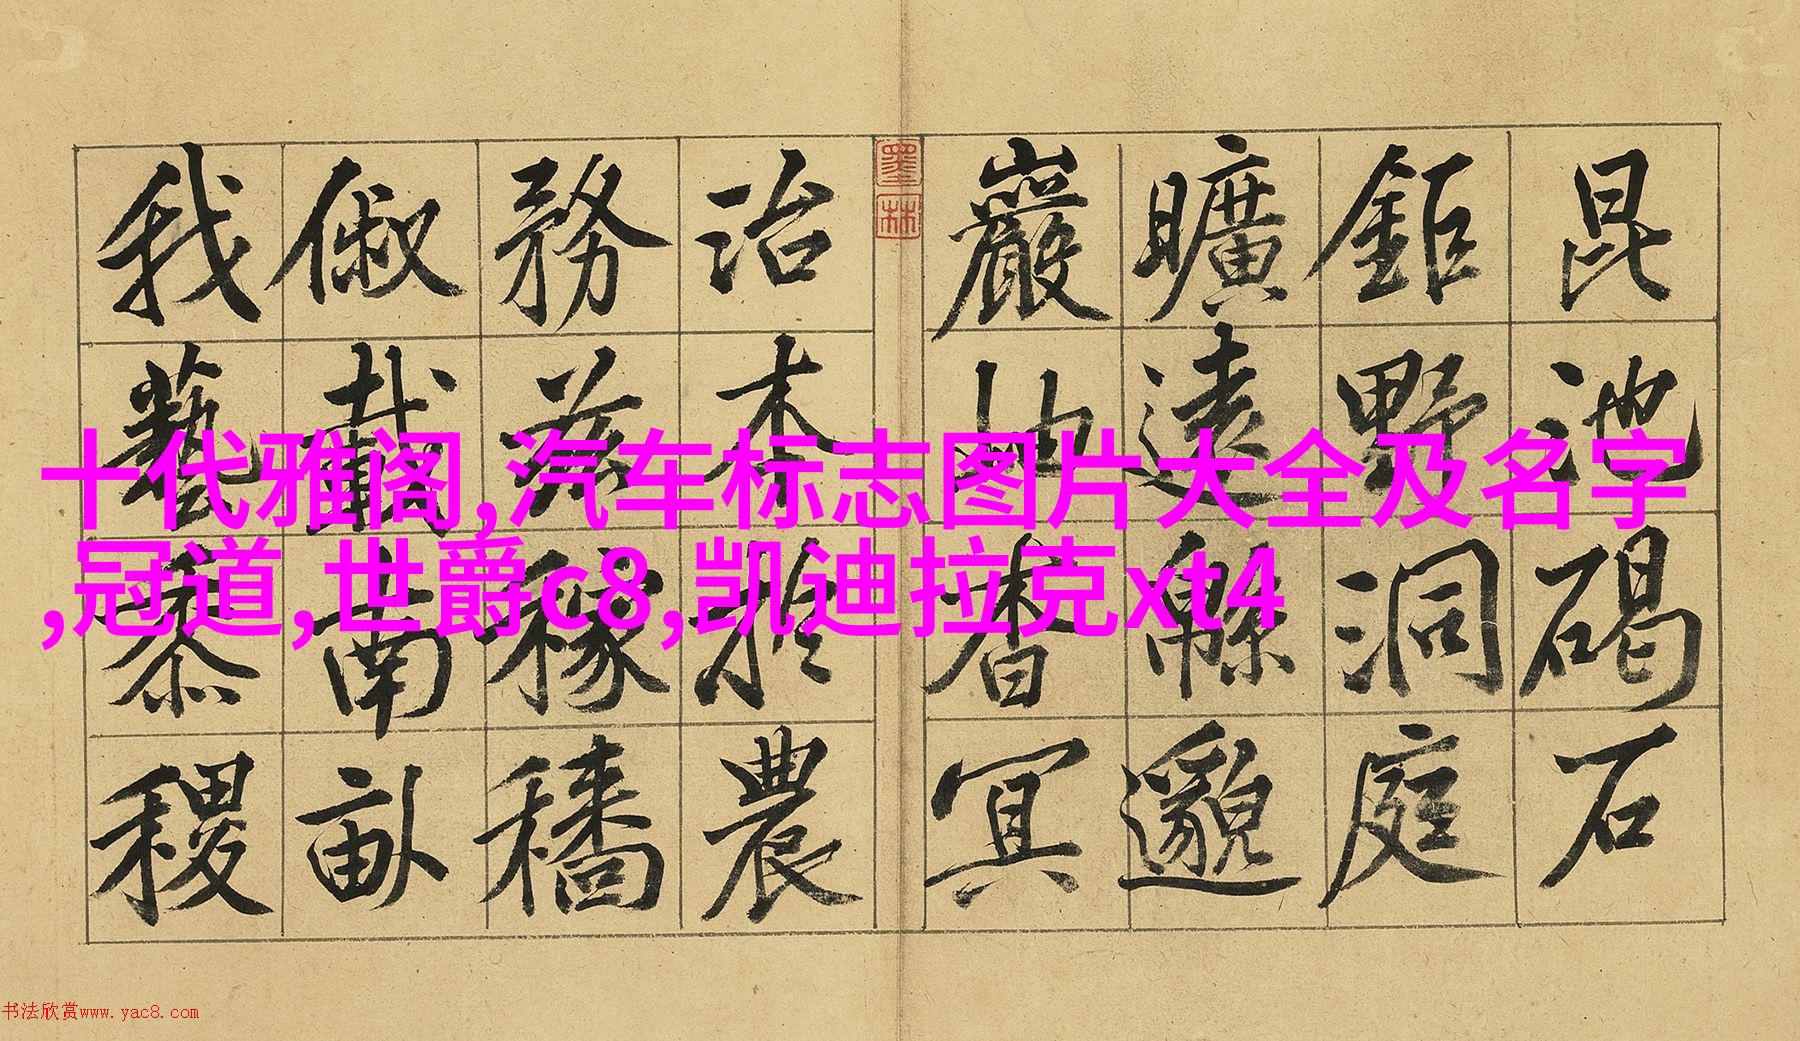 昆池碣石
鉅野洞庭
曠遠緜邈
巖岫杳冥
治本於農
務茲稼穡
俶載南畝
我藝黍稷
墨林
十代雅阁,汽车标志图片大全及名字
,冠道,世爵c8,凯迪拉克xt4
书法欣赏www.yac8.com